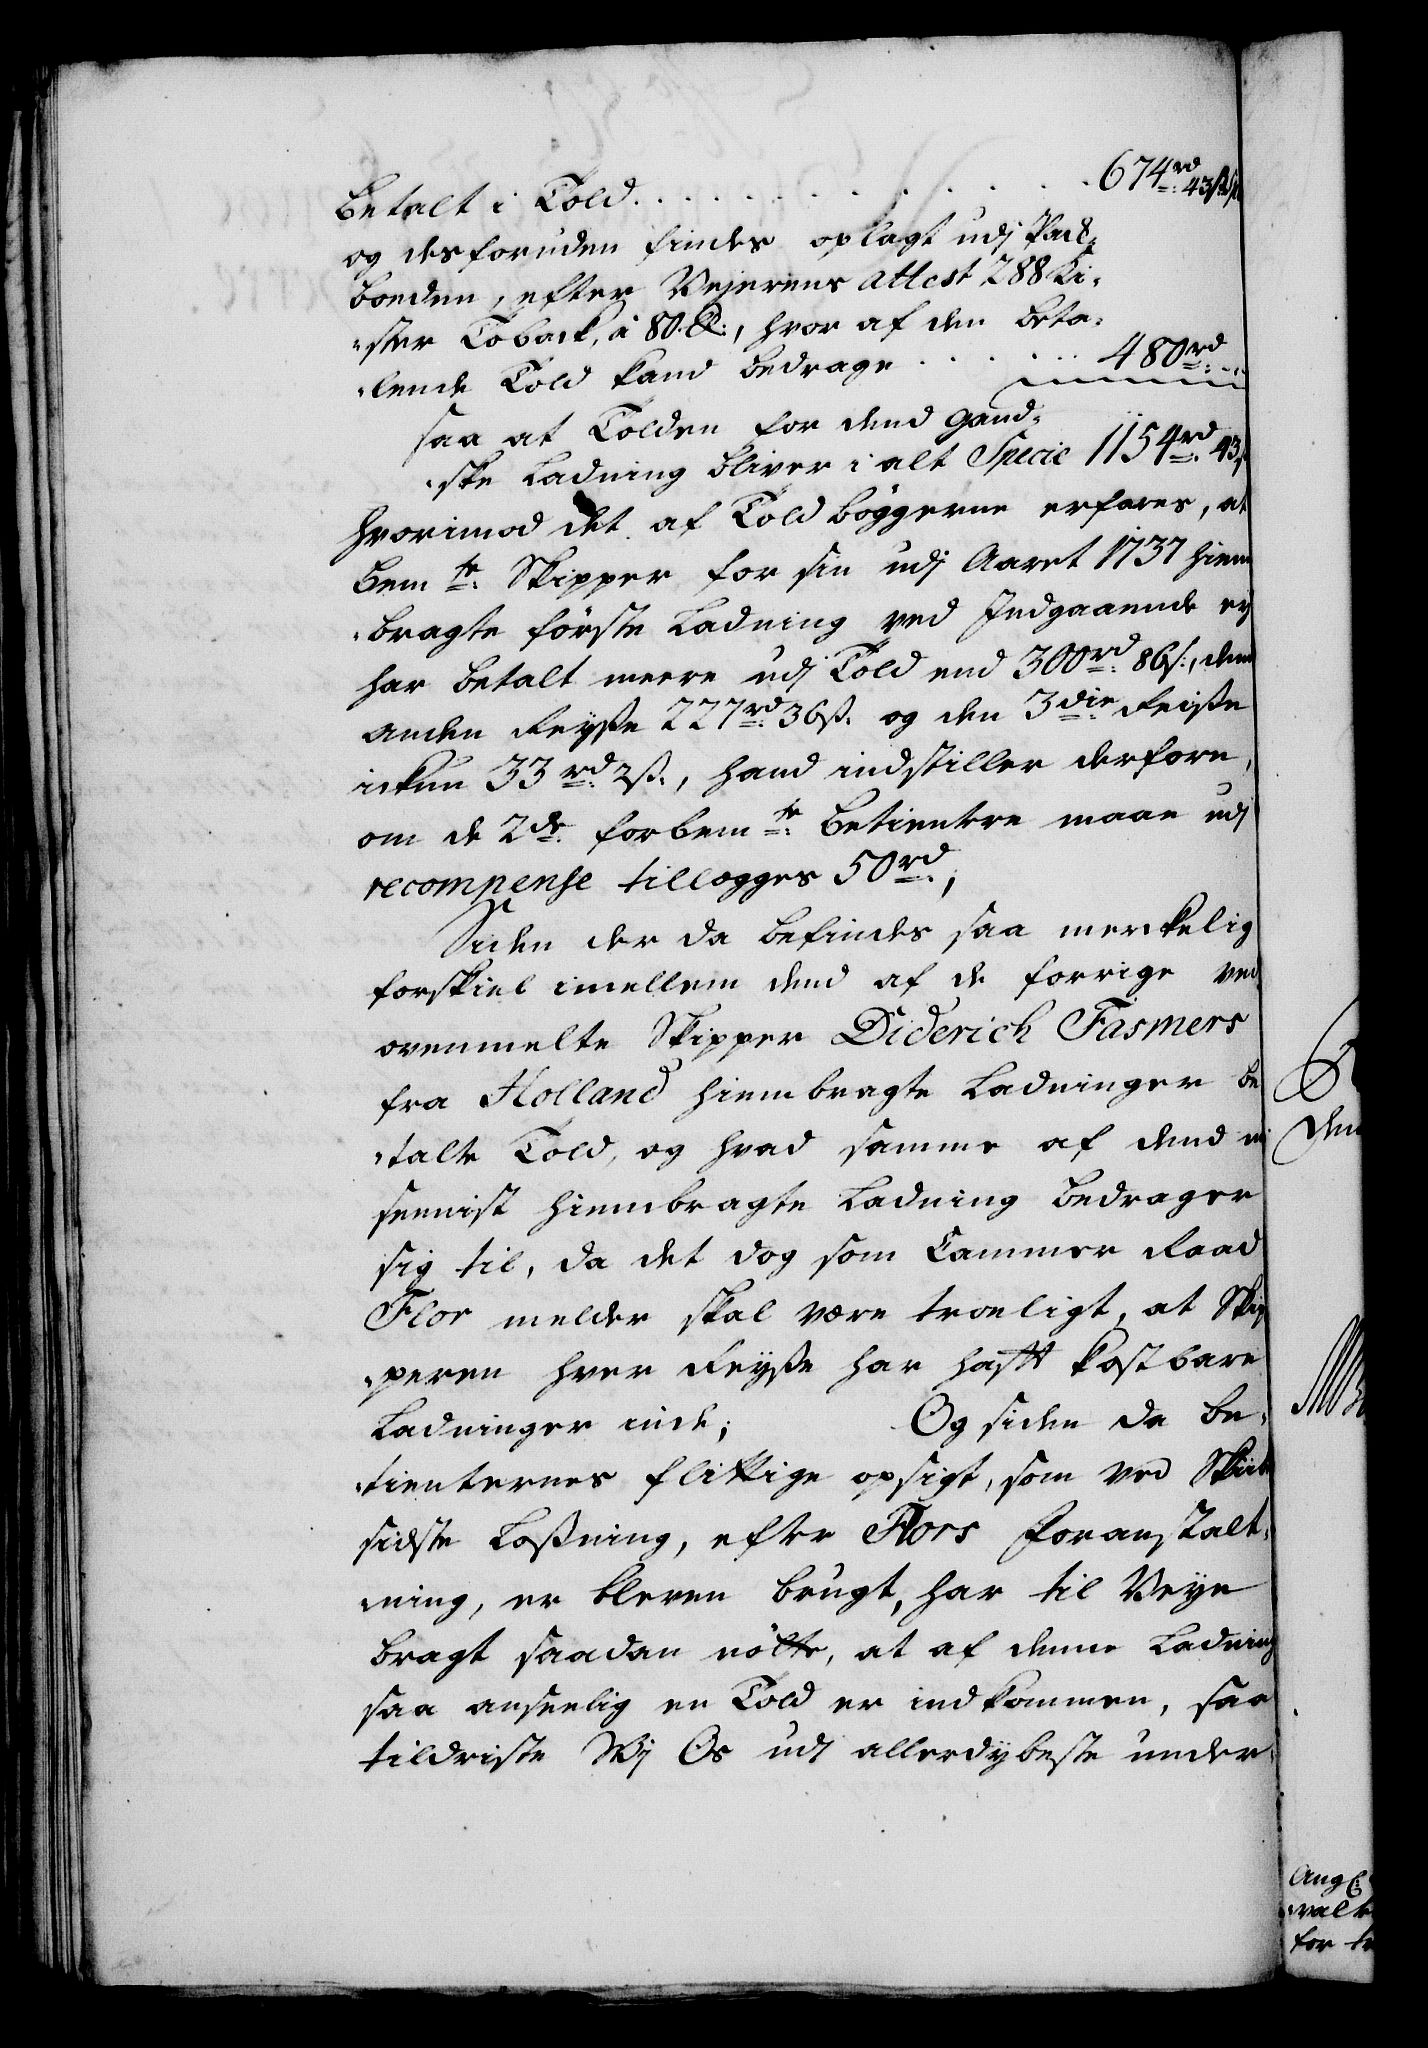 betalt i Told. . . . . . . . . 674rd: 43ß
og desforuden findes oplagt udj Pack-
boeden, efter Vejerens attest 288 Ki-
ster Toback, à 80 ℔:, hvor af den beta-
lende Told kand bedrage . . . . . 480rd:
saa at Tolden for dend gand-
ske Ladning bliver i alt Specie 1154rd: 43ß
hvorimod det af Told bøggerne erfares, at
bemte: Skipper for sin udj Aaret 1737 hiem
bragte første Ladning ved Indgaaende ey
har betalt meere udj Told end 300rd: 86ß:, den
anden Reyße 227rd: 36ß. og den 3die: Reiße
ickun 33rd: 2ß., hand indstiller derfore,
om de 2de: forbemte: Betientere maae udj
recompense tillegges 50rd:;
Siden der da befindes saa merckelig
forskiel imellem dend af de forrige ved
ovenmelte Skipper Diderich Fasmers
fra Holland hiembragte Ladninger be
talte Told, og hvad samme af dend nu
sennist hiembragte Ladning bedrager
sig til, da det dog som Cammer Raad
Flor melder skal være troeligt, at Skip
peren hver Reyße har hafft kostbare
Ladninger inde; Og siden da be-
tienternes flittige opsigt, som ved Skibets
sidste Loßning, efter Flors Foranstalt-
ning, er bleven brugt, har til Veye
bragt saadan nötte, at af denne Ladning
saa anseelig en Told er indkommen, saa
tildriste Wj Os udj allerdybeste under-